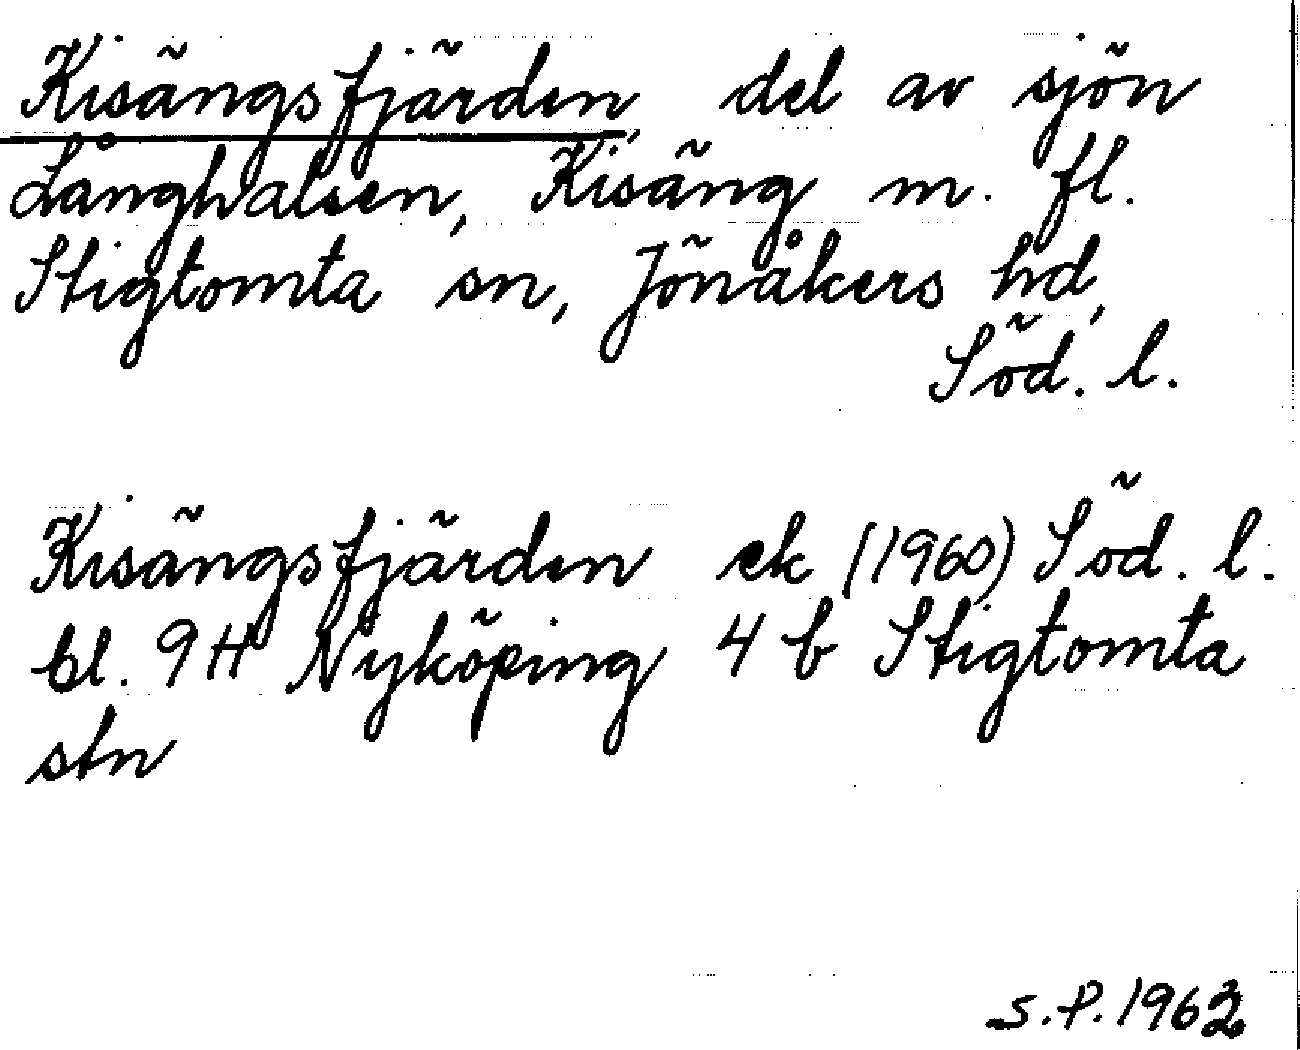 Kisängsfjärden, del av sjön
Långhalsen, Kisäng m. fl.
Stigtomta sn, Jönåkers hd,
Söd. l.
Kisängsfjärden ek (1960) Söd. l.
bl. 9H Nyköping 4 b Stigtomta
stn
S.P. 1963